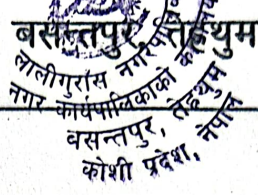 बसन्तपुर, तेह्रथुम
लालीगुराँस नगरपालिका
नगर कार्यपालिकाको कार्यालय
वसन्तपुर, तेह्रथुम
कोशी प्रदेश, नेपाल